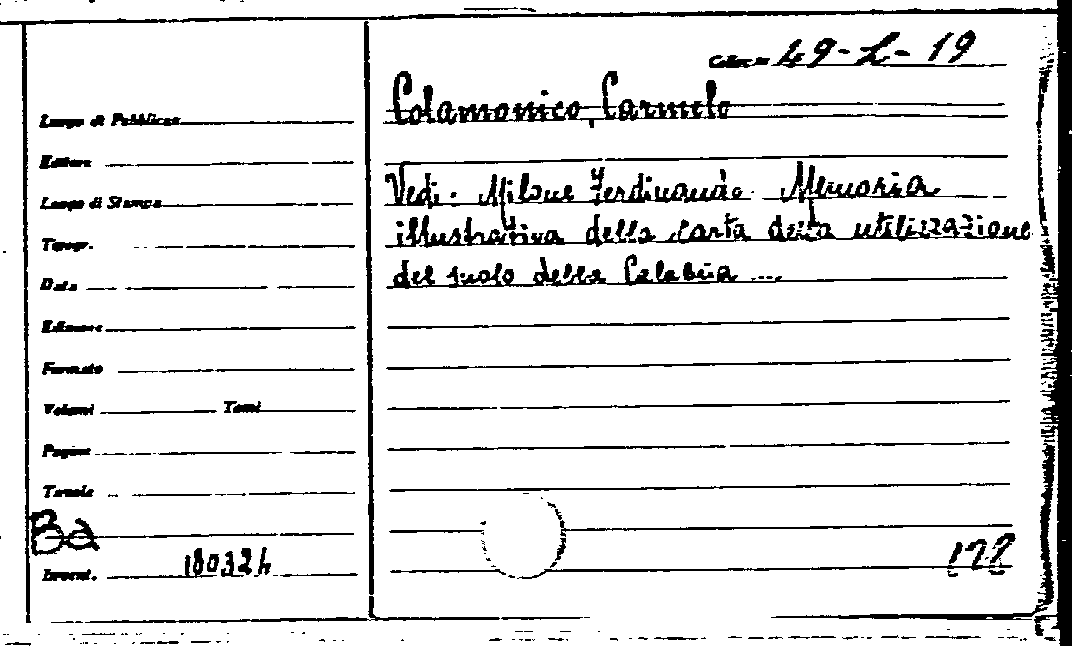 Colloc.ne 49-L-19
Colamonico, Carmelo
Luogo di Pubblicaz.
Editore
Vedi: Milone Ferdinando. Memoria
Luogo di Stampa
illustrativa della carta della utilizzazione
Tipogr.
del suolo della Calabria ....
Data
Edizione
Formato
Volumi Tomi
Pagine
Tavole
Ba
Invent. 180324